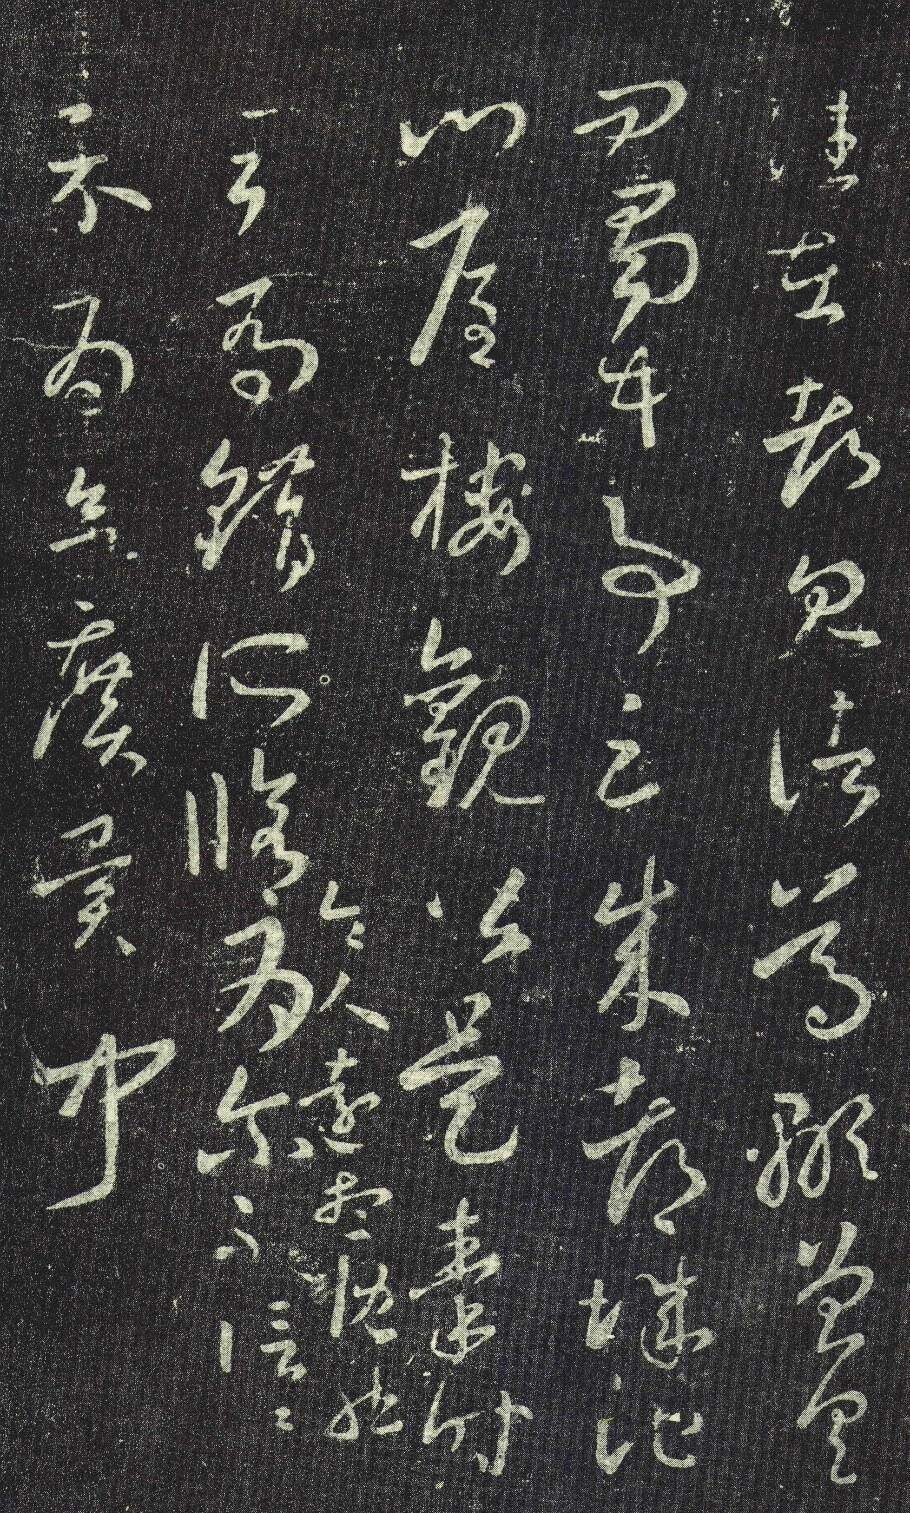 往在都見諸葛顒曾具
問蜀中事云成都城池
門屋樓觀皆是秦時
司馬錯所修
令人遠想慨然
為爾不信一一
示為欲廣異聞